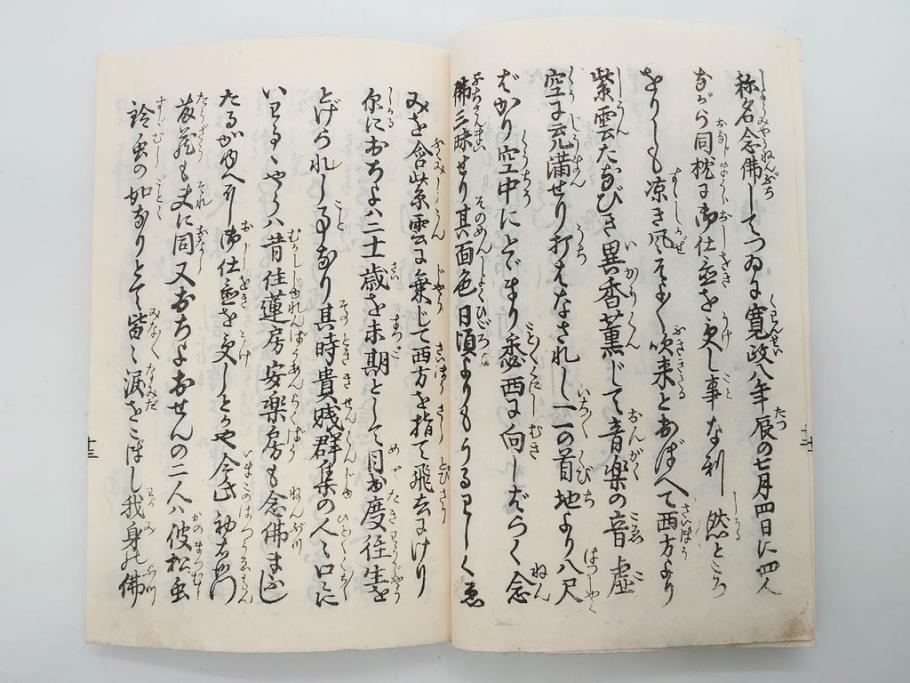 称名念佛してつゐに寛政八年辰の七月四日に四人
ながら同枕に御仕置を受し事な利然ところ
をりしも凉き風そよ〳〵吹来とおぼへて西方より
紫雲たなびき異香薫じて音楽の音虚
空に充満せり打はなされし一二の首地より八尺
ばかり空中にとゞまり悉西に向しばらく念
佛三昧せり其面色日頃よりもうるわしく恵
みを含紫雲に乗じて西方を指て飛去にけり
尓におちよハ二十歳を末期として目出度往生を
とげられし事なり其時貴賎群集の人々口々に
いわるゝやうハ昔住蓮房安楽房も念佛まふし
たるがゆへに御仕置を受しとかや今此初右衛門
藤蔵も夫に同又おちよおせんの二人ハ彼松虫
鈴虫の如なりとて皆々涙をこぼし我身の佛
十三